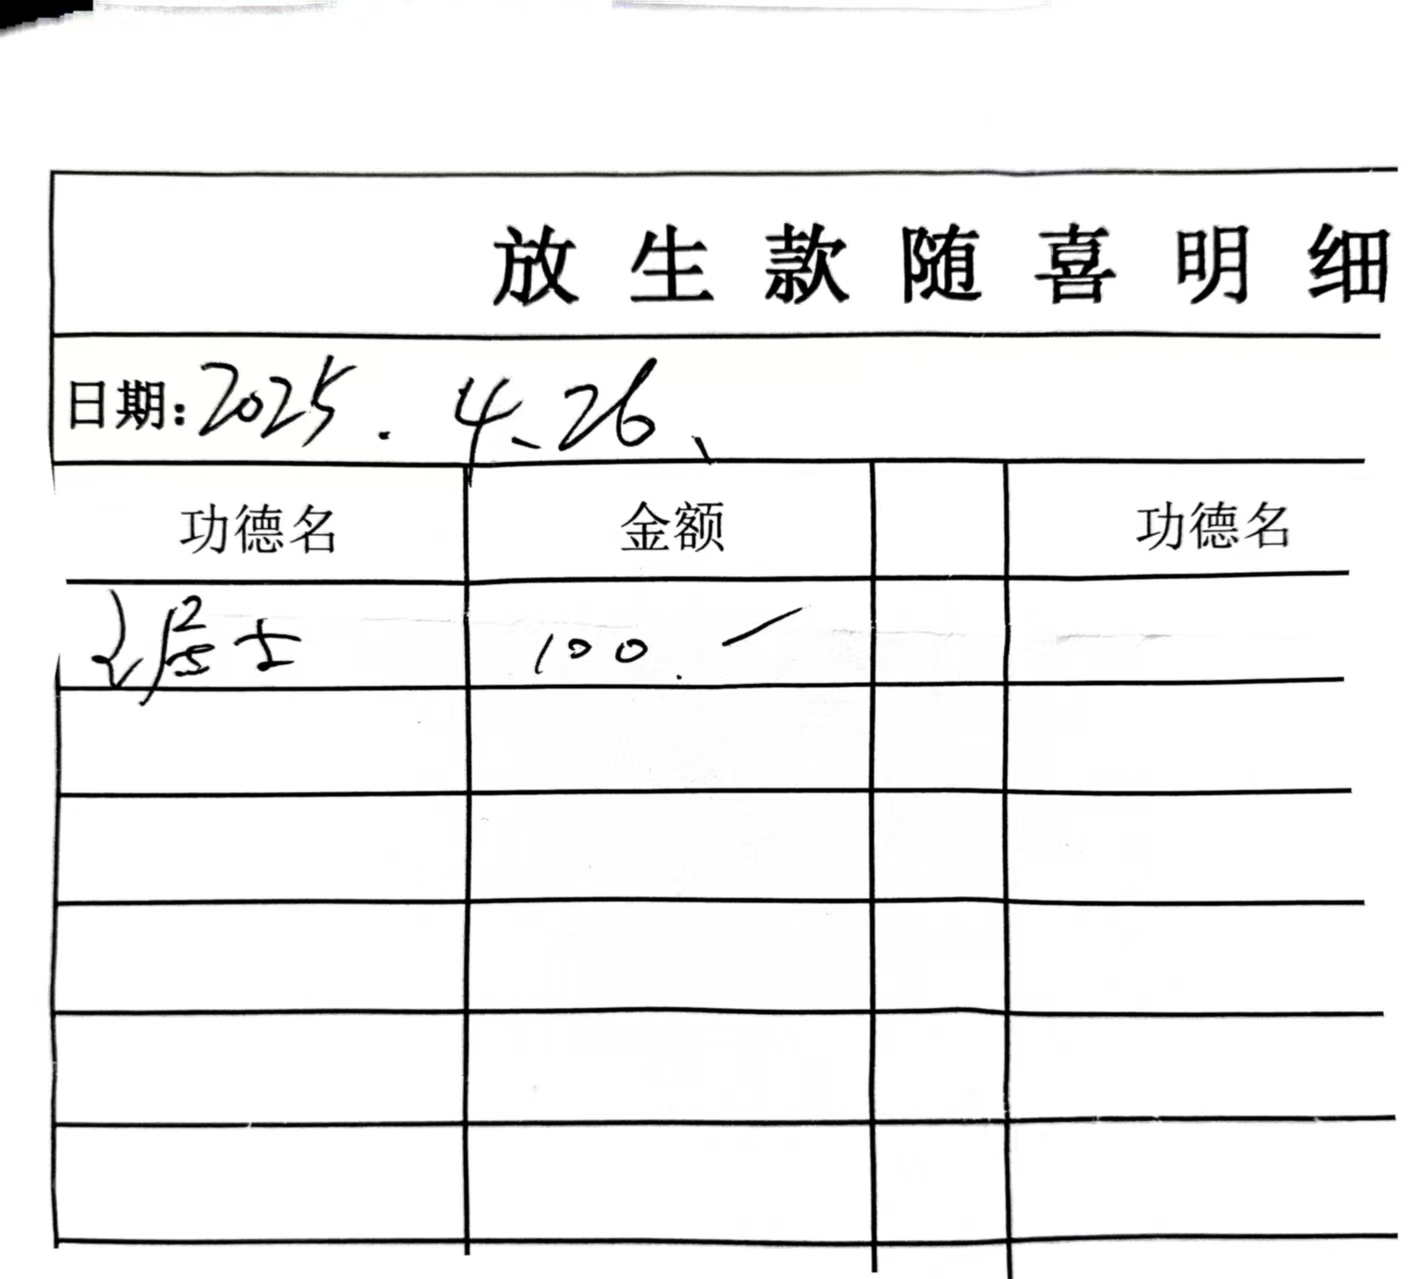 放生款随喜明细
日期：2025.4、26、
功德名 金额 功德名
居士 100.